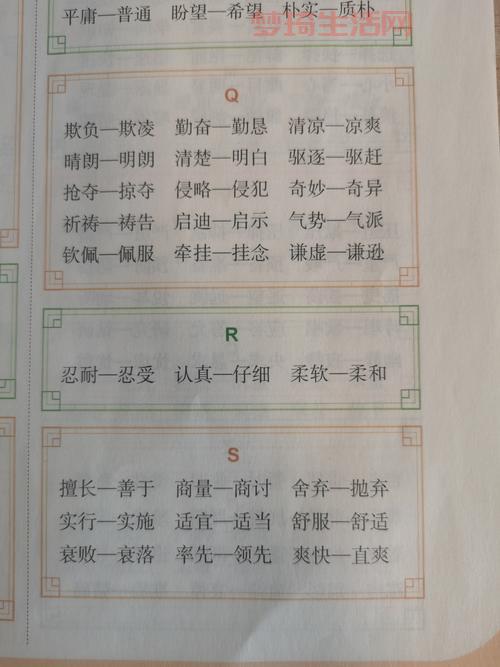 梦琦生活网
平庸—普通 盼望—希望 朴实—质朴
Q
欺负—欺凌 勤奋—勤恳 清凉—凉爽
晴朗—明朗 清楚—明白 驱逐—驱赶
抢夺—掠夺 侵略—侵犯 奇妙—奇异
祈祷—祷告 启迪—启示 气势—气派
钦佩—佩服 牵挂—挂念 谦虚—谦逊
R
忍耐—忍受 认真—仔细 柔软—柔和
S
擅长—善于 商量—商讨 舍弃—抛弃
实行—实施 适宜—适当 舒服—舒适
衰败—衰落 率先—领先 爽快—直爽